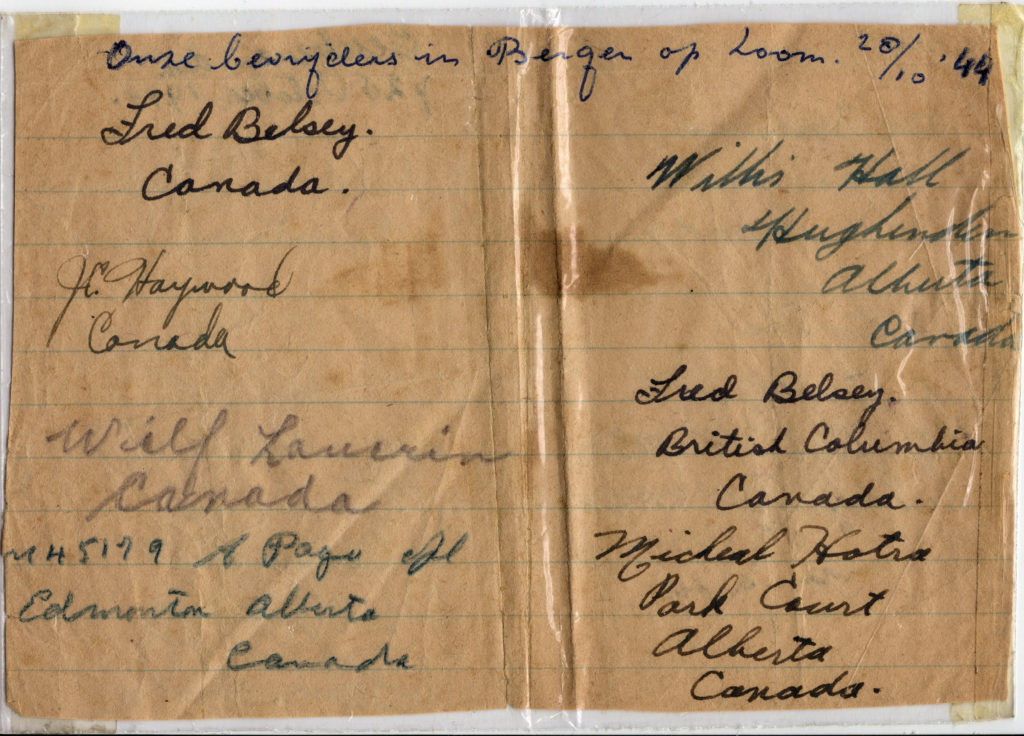 Onze bevrijders in Bergen op Zoom. 28/10 '44
Fred Belsey.
Canada.
J.E. Haywood
Canada
Wilf Lauerin
Canada
M45179 A Page cpl
Edmonton Alberta
Canada
Willis Hall
Hughenden
Alberta
Canada
Fred Belsey.
British Columbia
Canada.
Micheal Hotra
Park Court
Alberta
Canada.